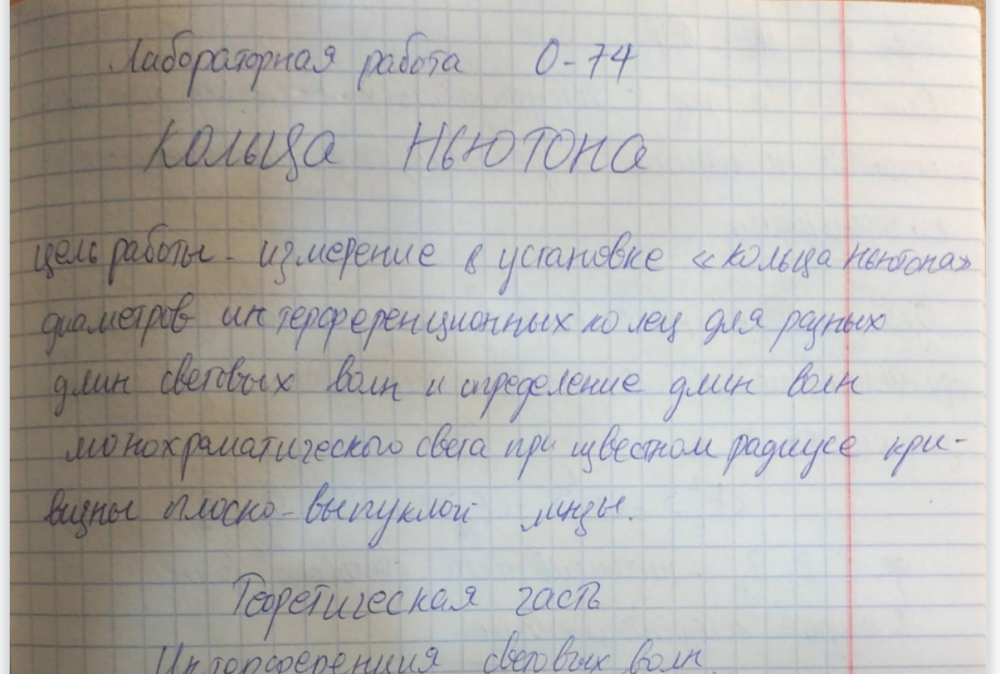 Лабораторная работа О-74
Кольца Ньютона
цель работы - измерение в установке «кольца Ньютона»
диаметров интерференционных колец для разных
длин световых волн и определение длин волн
монохраматического света при известном радиусе кри-
визны плоско-выпуклой линзы.
Теоретическая часть
Интерференция световых волн